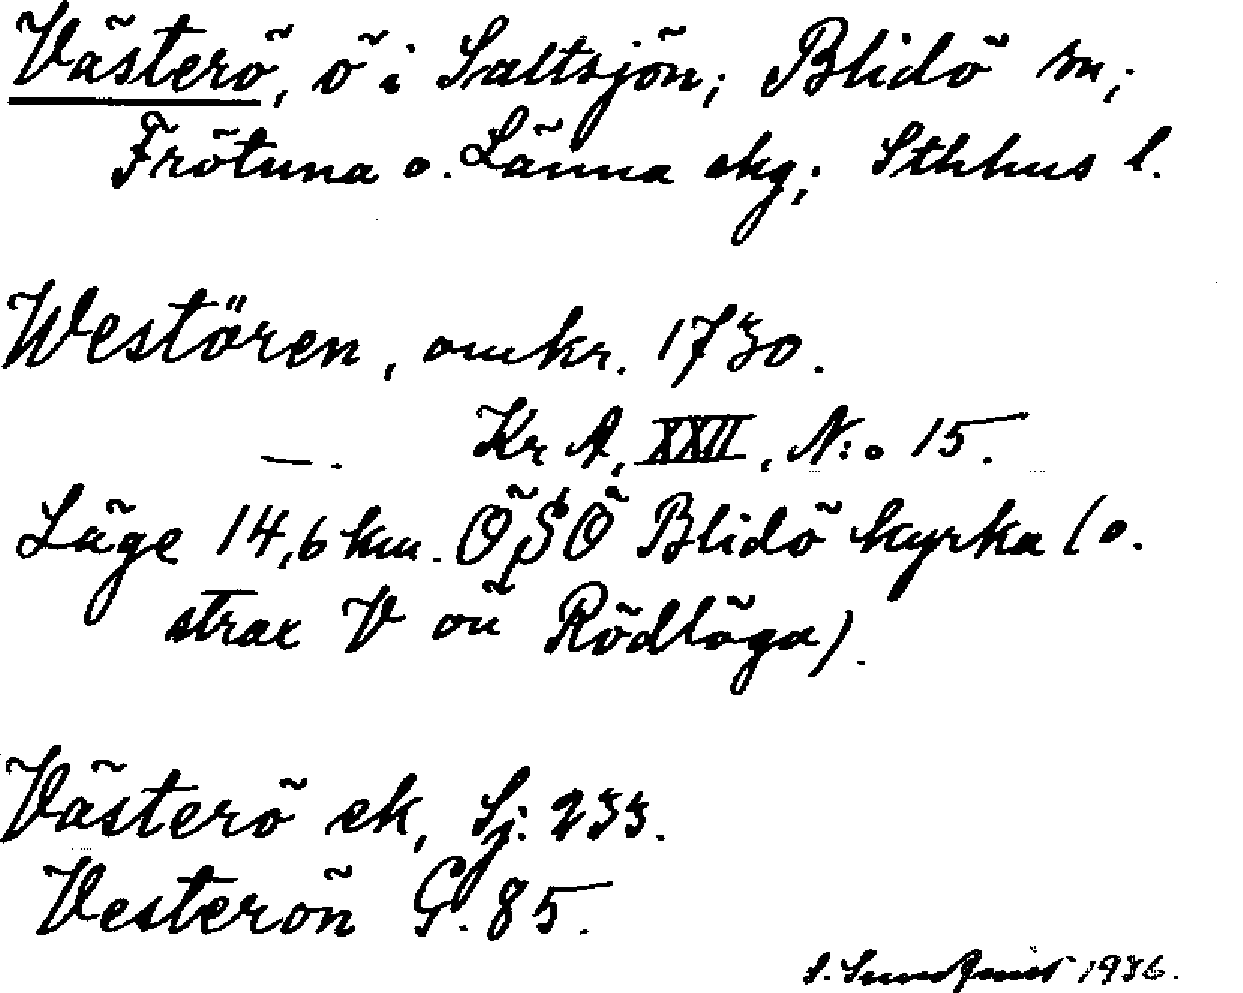 Västerö, ö i Saltsjön; Blidö sn;
Frötuna o. Länna skg; Sthlms l.
Westören, omkr. 1730.
—. Kr A, XXII, N:o 15.
Läge 14,6 km. ÖSÖ Blidö kyrka (o.
strax V om Rödlöga).
Västerö ek, Sj. 233.
Vesterön G. 85.
S. Sundqvist 1936.